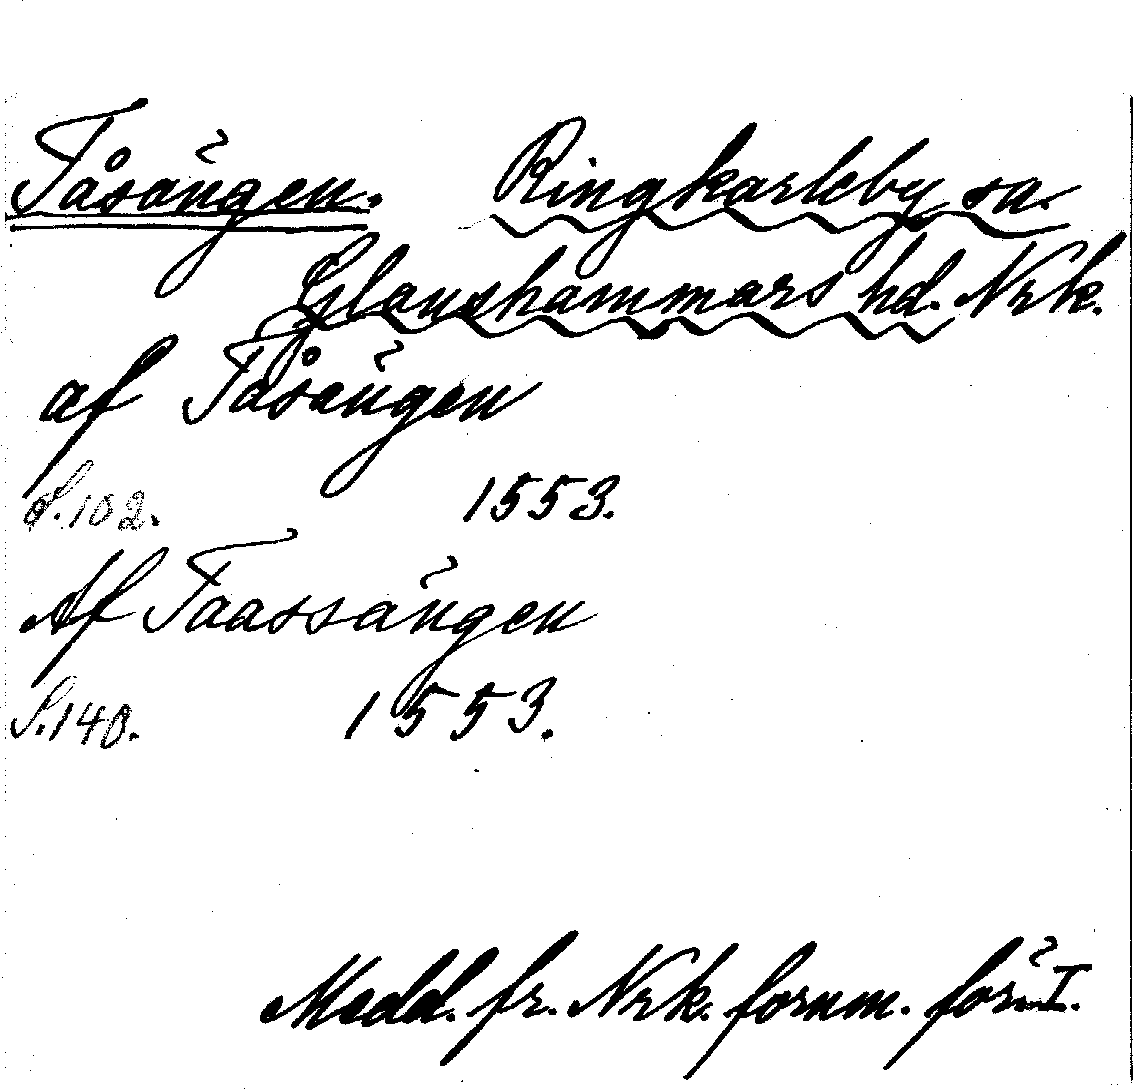 Tåsängen. Ringkarleby sn.
Glanshammars hd. Nrk.
af Tåsängen
S.102. 1553.
Af Taassängen
S.140. 1553.
Medd. fr. Nrk. fornm. för. I.